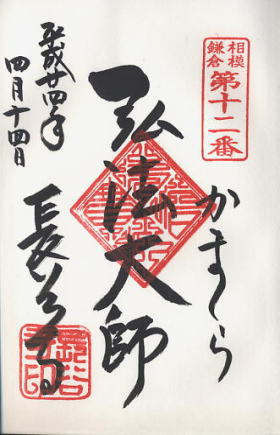 相模
鎌倉
第十二番
かまくら
弘法大師
長谷寺
平成廿四年
四月十四日